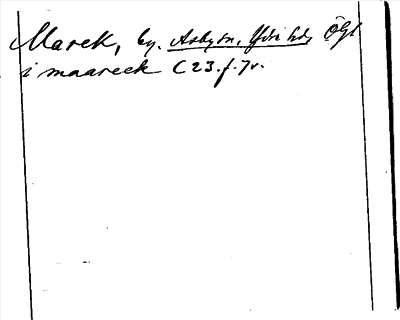 Marek, by. Asby sn, Ydre hd, Ögl
i maareck C 23. f. 7v.